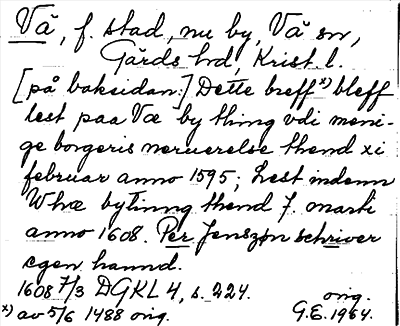 Vä, f. stad, nu by, Vä sn,
Gärds hd, Krist. l.
[på baksidan:] Dette breff x) bleff
lest paa Væ by thing vdi meni-
ge borgeris neruerelse thend xi
februar anno 1595; Lest indenn
Whæ bytinng thend 7. marti
anno 1608. Per Jenszøn schriver
egen hannd.
1608 7/3 DGKL 4, s. 224. orig.
x) av 5/6 1488 orig. G.E. 1964.